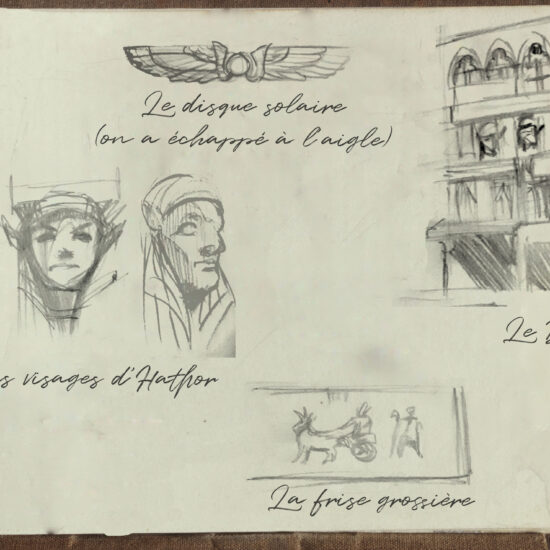 Le disque solaire
(on a échappé à l'aigle)
visages d'Hathor
Le
La frise grossière